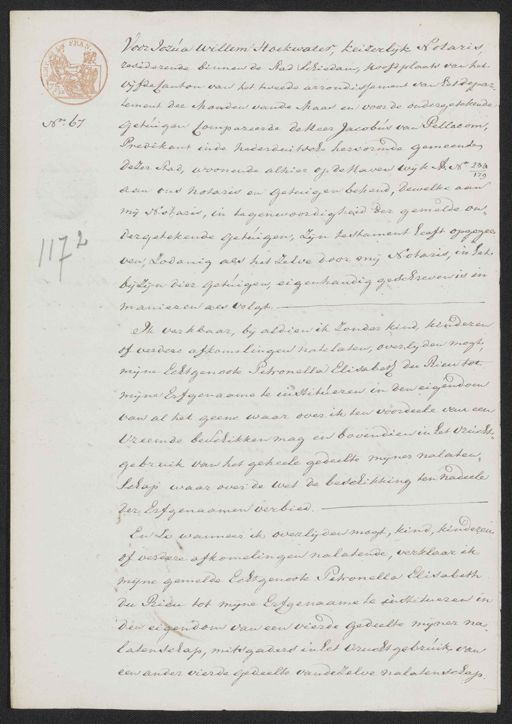 Voor Jozúa Willem Hoekwater, keizerlyk Notaris,
resideerende binnen de Stad Schiedam, Hoofdplaats van het
vijfde Canton van het tweede arrondissement van het depar-
tement der Monden van de Maas en voor de ondergetekende
N°. 67
getuigen Compareerde de Heer Jacobús van
Predikant in de Nederduitsche hervormde gemeente
dezer Stad, woonende alhier op de Haven wijk A N°
aan ons notaris en getuigen bekend, dewelke aan
mij Notaris, in tegenwoordigheid der gemelde on-
dergetekende getuigen, zijn testament heeft opgegee-
1172
ven, zodanig als het zelve door mij Notaris, in het
bijzijn dier getuigen, eigenhandig geschreven is in
manieren als volgt.
Ik verklaar, by aldien ik zonder kind, kinderen
of verdere afkomelingen natelaten, overlyden mogt,
mijne Echtgenoote Petronella Elisabeth du Rieu tot
mijne Erfgenaame te institúeren in den eigendom
van al het geene waar over ik ten voordeele van een
vreemde beschikken mag en bovendien in het vrucht-
gebruik van het geheele gedeelte mijner nalaten-
schap waar over de wet de beschikking ten nadeele
der Erfgenaamen verbied.
En wanneer ik overlyden mogt, kind, kinderen
of verdere afkomelingen nalatende, verklaar ik
mijne gemelde Echtgenoote Petronella Elisabeth
du Rieu tot mijne Erfgenaame te institúeren in
den eigendom van een vierde gedeelte mijner na-
latenschap, mitsgaders in het vruchtgebrúik van
een ander vierde gedeelte van dezelve nalatenschap.